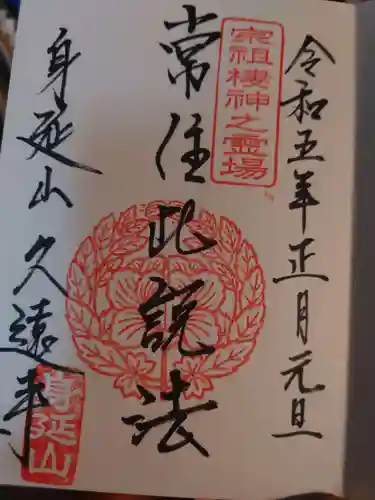 令和五年正月元旦
宗祖棲神之霊場
常住此説法
身延山久遠寺
身延山